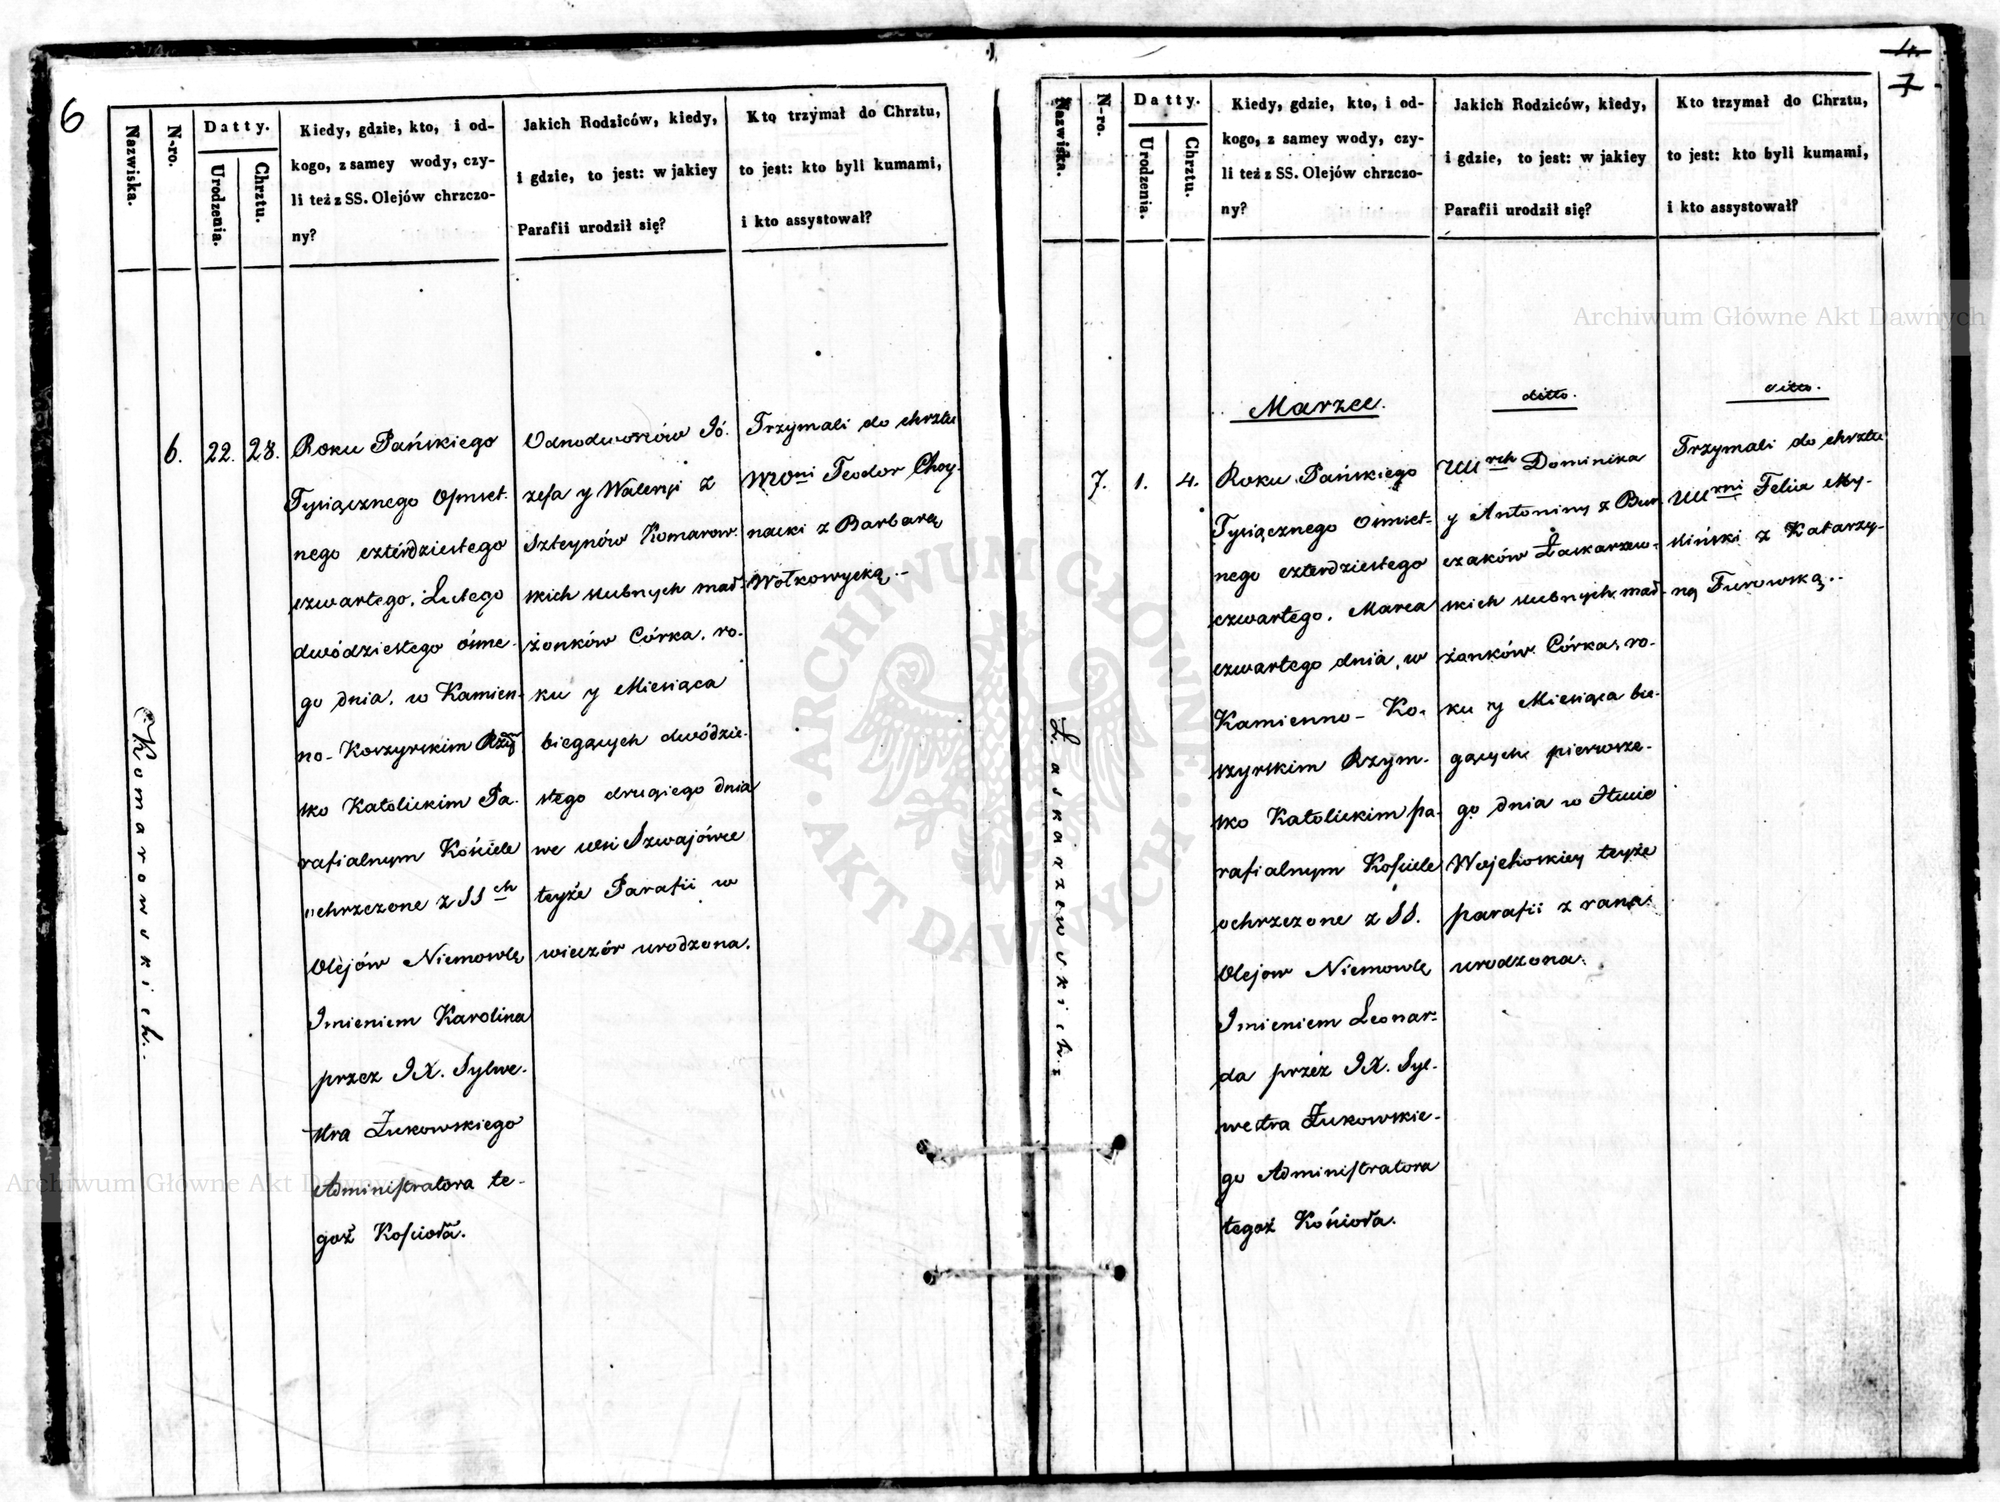 6
Nazwiska.
N-ro.
Datty.
Urodzenia.
Chrztu.
Kiedy, gdzie, kto, i od-
kogo, z samey wody, czy-
li też z SS. Olejów chrzczo-
ny?
Jakich Rodziców, kiedy,
i gdzie, to jest: w jakiey
Parafii urodził się?
Kto trzymał do Chrztu,
to jest: kto byli kumami,
i kto assystował?
Komarowskich.
6.
22.
28.
Roku Pańskiego
Tysiącznego Ośmset-
nego czterdziestego
czwartego. Lutego
dwódziestego ósme-
go dnia. w Kamien-
no-Koszyrskim Rzym
sko Katolickim Pa-
rafialnym Kościele
ochrzczone z SSch
Olejów Niemowlę
Imieniem Karolina
przez JX. Sylwe-
stra Żukowskiego
Administratora te-
goż Kościoła.
Odnodworców Jó-
zefa y Waleryi z
Szteynów Komarow-
skich slubnych mał-
żonków Córka. ro-
ku y Miesiąca
biegących dwódzie-
stego drugiego dnia
we wsi Szwajówce
teyże Parafii w
wieczór urodzona.
Trzymali do chrztu
WWoni Teodor Choy-
nacki z Barbarą
Wołkowycką.-
4.
7
Nazwiska.
N-ro.
Datty.
Urodzenia.
Chrztu.
Kiedy, gdzie, kto, i od-
kogo, z samey wody, czy-
li też z SS. Olejów chrzczo-
ny?
Jakich Rodziców, kiedy,
i gdzie, to jest: w jakiey
Parafii urodził się?
Kto trzymał do Chrztu,
to jest: kto byli kumami,
i kto assystował?
Łaskarzewskich.
Marzec.
ditto.
ditto.
7.
1.
4.
Roku Pańskiego
Tysiącznego Ośmset-
nego czterdziestego
czwartego. Marca
czwartego dnia, w
Kamienno-Ko-
szyrskim Rzym-
sko Katolickim pa-
rafialnym Kościele
ochrzczone z SS.
Olejow Niemowlę
Imieniem Leonar-
da przez JX. Syl-
westra Żukowskie-
go Administratora
tegoż Kościoła.
UUrch Dominika
y Antoniny z Bur-
czaków Łaskarzew-
skich slubnych mał-
żonków Córka. ro-
ku y Miesiąca bie-
gących pierwsze-
go dnia w Hucie
Wojehoskiey teyże
parafii z rana
urodzona.
Trzymali do chrztu
UUrni Felix My-
śliński z Katarzy-
ną Furowską.-
Archiwum Główne Akt Dawnych
Archiwum Główne Akt Dawnych
ARCHIWUM GŁÓWNE AKT DAWNYCH